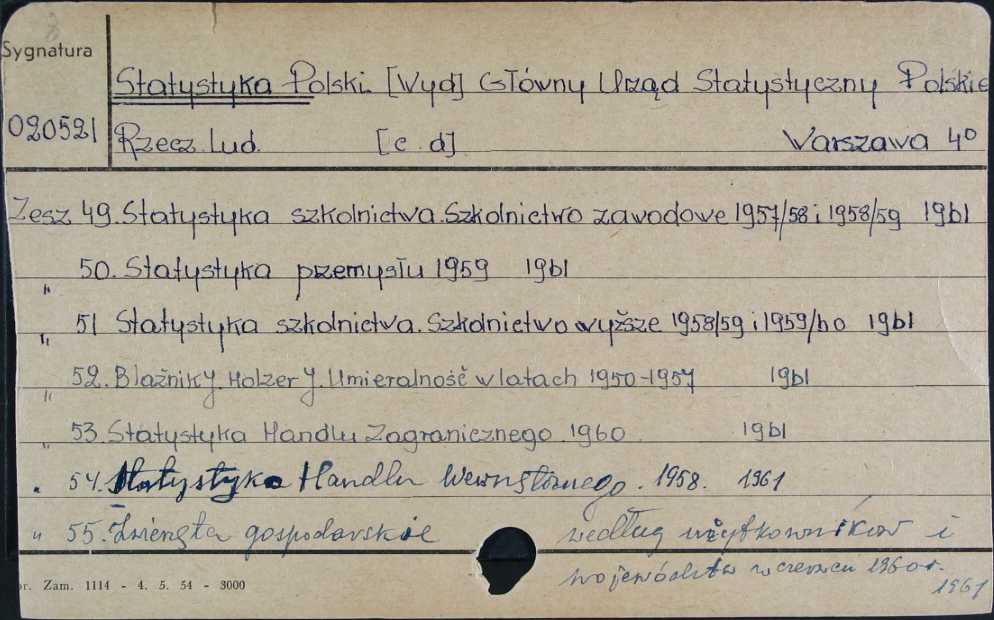 Sygnatura
Statystyka Polski. [Wyd] Główny Urząd Statystyczny Polskie
020521 Rzecz. Lud. [c d] Warszawa 4°
Zesz 49. Statystyka szkolnictwa. Szkolnictwo zawodowe 1957/58 i 1958/59 1961
" 50. Statystyka przemysłu 1959 1961
" 51 Statystyka szkolnictwa. Szkolnictwo wyższe 1958/59 i 1959/60 1961
" 52. Blaźnik J. Holzer J. Umieralność w latach 1950-1957 1961
" 53. Statystyka Handlu Zagranicznego 1960 1961
" 54. Statystyka Handlu Wewnętrznego. 1958. 1961
" 55. Zwierzęta gospodarskie według użytkowników i
województw w czerwcu 1960 r.
1961
r. Zam. 1114 - 4. 5. 54 - 3000